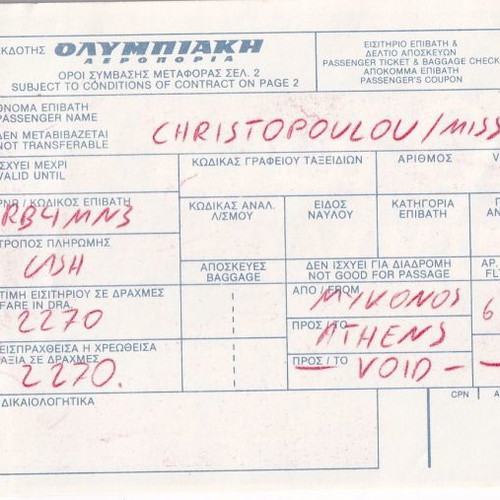 ΕΚΔΟΤΗΣ ΟΛΥΜΠΙΑΚΗ
ΑΕΡΟΠΟΡΙΑ
ΟΡΟΙ ΣΥΜΒΑΣΗΣ ΜΕΤΑΦΟΡΑΣ ΣΕΛ. 2
SUBJECT TO CONDITIONS OF CONTRACT ON PAGE 2
ΕΙΣΙΤΗΡΙΟ ΕΠΙΒΑΤΗ &
ΔΕΛΤΙΟ ΑΠΟΣΚΕΥΩΝ
PASSENGER TICKET & BAGGAGE CHECK
ΑΠΟΚΟΜΜΑ ΕΠΙΒΑΤΗ
PASSENGER'S COUPON
ΟΝΟΜΑ ΕΠΙΒΑΤΗ
PASSENGER NAME
ΔΕΝ ΜΕΤΑΒΙΒΑΖΕΤΑΙ
NOT TRANSFERABLE
CHRISTOPOULOU/MISS
ΙΣΧΥΕΙ ΜΕΧΡΙ
VALID UNTIL
ΚΩΔΙΚΑΣ ΓΡΑΦΕΙΟΥ ΤΑΞΕΙΔΙΩΝ
ΑΡΙΘΜΟΣ
PNR / ΚΩΔΙΚΟΣ ΕΠΙΒΑΤΗ
RB4MNS
ΚΩΔΙΚΑΣ ΑΝΑΛ.
Λ/ΣΜΟΥ
ΕΙΔΟΣ
ΝΑΥΛΟΥ
ΚΑΤΗΓΟΡΙΑ
ΕΠΙΒΑΤΗ
ΤΡΟΠΟΣ ΠΛΗΡΩΜΗΣ
CASH
ΑΠΟΣΚΕΥΕΣ
BAGGAGE
ΔΕΝ ΙΣΧΥΕΙ ΓΙΑ ΔΙΑΔΡΟΜΗ
NOT GOOD FOR PASSAGE
ΑΡ.
ΤΙΜΗ ΕΙΣΙΤΗΡΙΟΥ ΣΕ ΔΡΑΧΜΕΣ
FARE IN DRA.
2270
ΑΠΟ / FROM MYKONOS 6
ΠΡΟΣ / TO ATHENS
ΕΙΣΠΡΑΧΘΕΙΣΑ Η ΧΡΕΩΘΕΙΣΑ
ΑΞΙΑ ΣΕ ΔΡΑΧΜΕΣ
2270.
ΠΡΟΣ / TO — VOID — —
ΔΙΚΑΙΟΛΟΓΗΤΙΚΑ
CPN